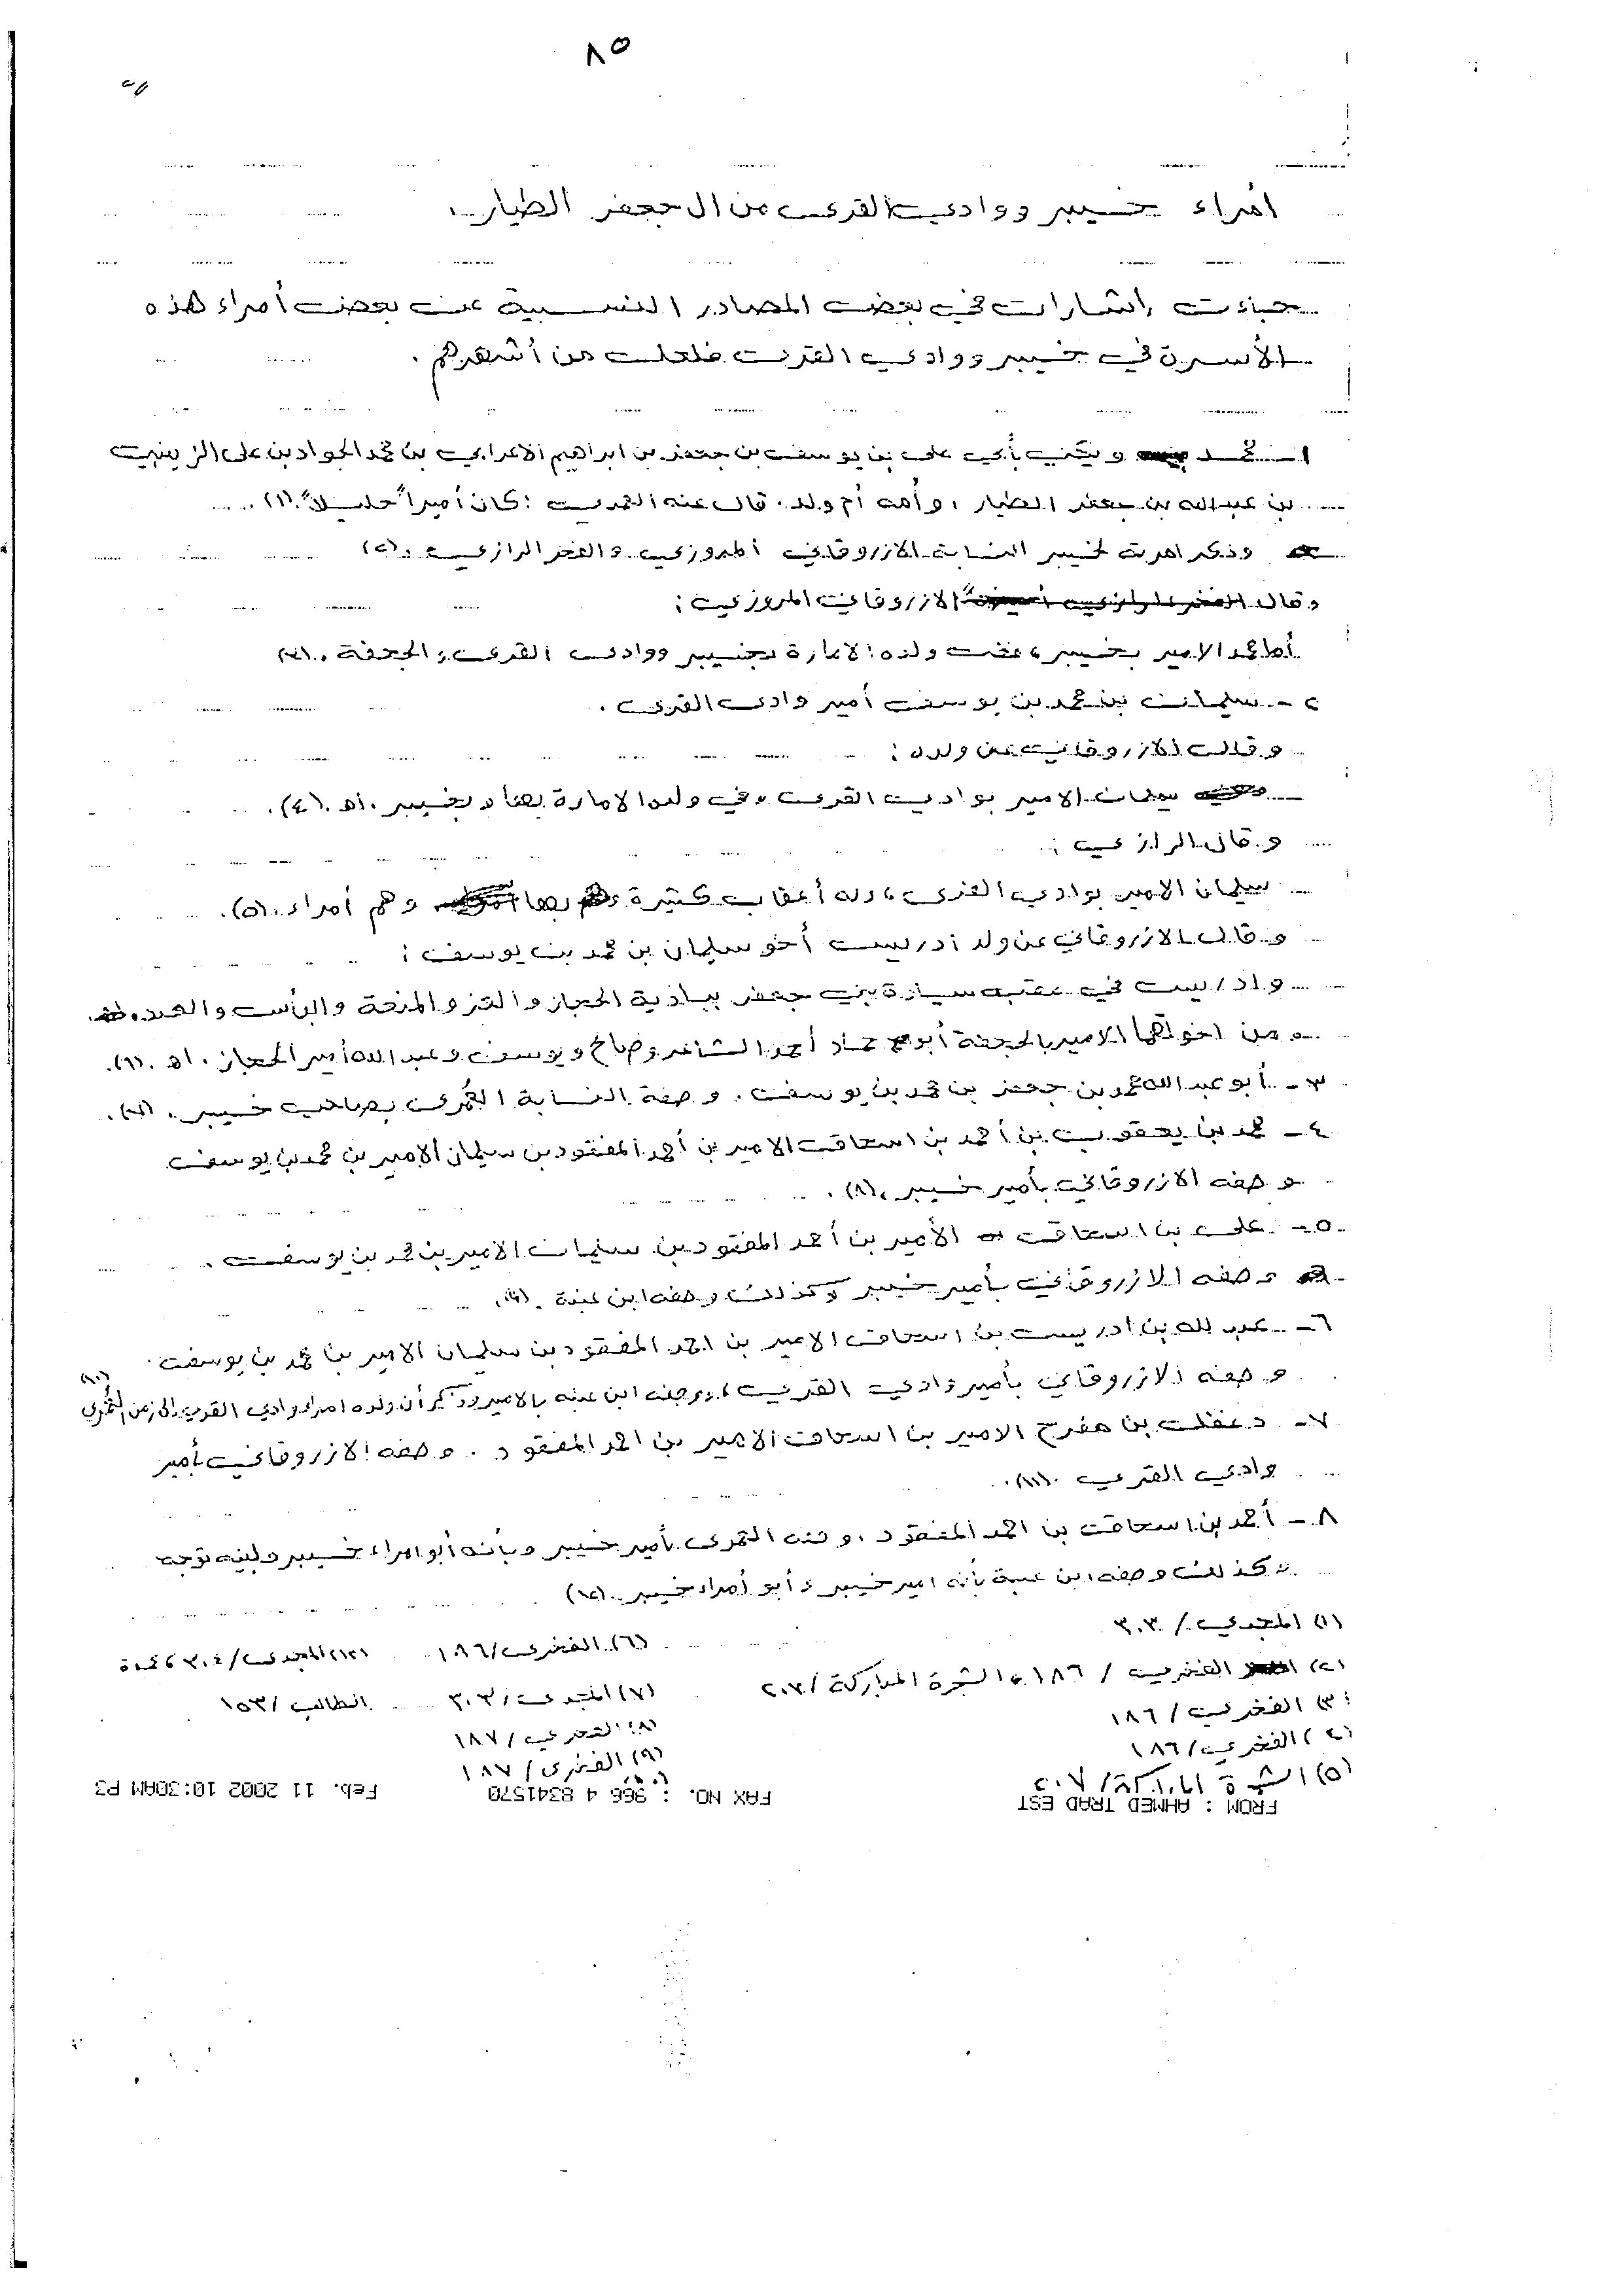 ٨٥
أمراء خيبر ووادي القرى من ال جعفر الطيار
جاءت إشارات في بعض المصادر النسبية عن بعض أمراء هذه
الأسرة في خيبر ووادي القرى فلعل من أشهرهم .
١ - محمد ويكنى بأبي علي بن يوسف بن جعفر بن ابراهيم الاعرابي بن محمد الجواد بن علي الزينبي
بن عبدالله بن جعفر الطيار ، وأمه أم ولد . قال عنه العمري : كان أميراً جليلاً . (١) .
وذكر امرته لخيبر النسابة الازروقاني المروزي والفخر الرازي . (٢)
وقال الازروقاني المروزي :
أما محمد الامير بخيبر ، ففي ولده الامارة بخيبر ووادي القرى والجحفة . (٣)
٢ - سليمان بن محمد بن يوسف أمير وادي القرى .
وقال الازروقاني عن ولده :
سليمان الامير بوادي القرى ، وفي ولده الامارة بها وبخيبر . اهـ . (٤) .
وقال الرازي :
سليمان الامير بوادي القرى ، وله أعقاب كثيرة بها وهم أمراء . (٥) .
وقال الازروقاني عن ولد ادريس أخو سليمان بن محمد بن يوسف :
وادريس في عقبه سيادة بني جعفر ببادية الحجاز والعز والمنعة والبأس والعدد .
ومن اخوتهما الامير بالجحفة أبو حماد أحمد الشاعر وصالح ويوسف وعبد الله أمير الحجاز . اهـ . (٦) .
٣ - أبو عبد الله محمد بن جعفر بن محمد بن يوسف . وصفه النسابة العمري بصاحب خيبر . (٧) .
٤ - محمد بن يعقوب بن أحمد بن اسحاق الامير بن أحمد المفقود بن سليمان الامير بن محمد بن يوسف
وصفه الازروقاني بأمير خيبر . (٨) .
٥ - علي بن اسحاق الأمير بن أحمد المفقود بن سليمان الامير بن محمد بن يوسف .
وصفه الازروقاني بأمير خيبر وكذلك وصفه ابن عنبة . (٩) .
٦ - عبد الله بن ادريس بن اسحاق الامير بن احمد المفقود بن سليمان الامير بن محمد بن يوسف .
وصفه الازروقاني بأمير وادي القرى ، ووصفه ابن عنبه بالامير وذكر أن ولده امراء وادي القرى الى زمن العمري (١٠)
٧ - دغفل بن مفرح الامير بن اسحاق الامير بن احمد المفقود . وصفه الازروقاني بأمير
وادي القرى . (١١) .
٨ - أحمد بن اسحاق بن احمد المفقود . وصفه العمري بأمير خيبر وبأنه أبو امراء خيبر ولبنيه توجه
وكذلك وصفه ابن عنبة بأنه امير خيبر وأبو أمراء خيبر . (١٢)
(١) المجدي / ٣٠٣
(٢) الفخري / ١٨٦ ، الشجرة المباركة / ٢٠٣
(٣) الفخري / ١٨٦
(٤) الفخري / ١٨٦
(٥) الشجرة المباركة / ٢٠٧
(٦) الفخري / ١٨٦
(٧) المجدي / ٣٠٣
(٨) الفخري / ١٨٧
(٩) الفخري / ١٨٧
(١٢) المجدي / ٣٠٤ ، عمدة
الطالب / ١٥٣
FROM : AHMED TRAD EST
FAX NO. : 966 4 8341570
Feb. 11 2002 10:30AM P3